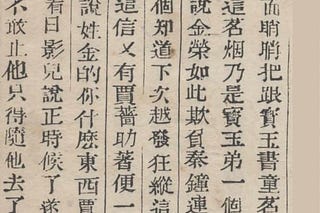 面睄睄把跟寶玉書童茗
這茗烟乃是寶玉弟一個
說金榮如此欺負秦鐘連
個知道下次越發狂縱這
這信又有賈薔助著便一
說姓金的你什麽東西賈
看日影兒說正時候了遂
不敢止他只得隨他去了